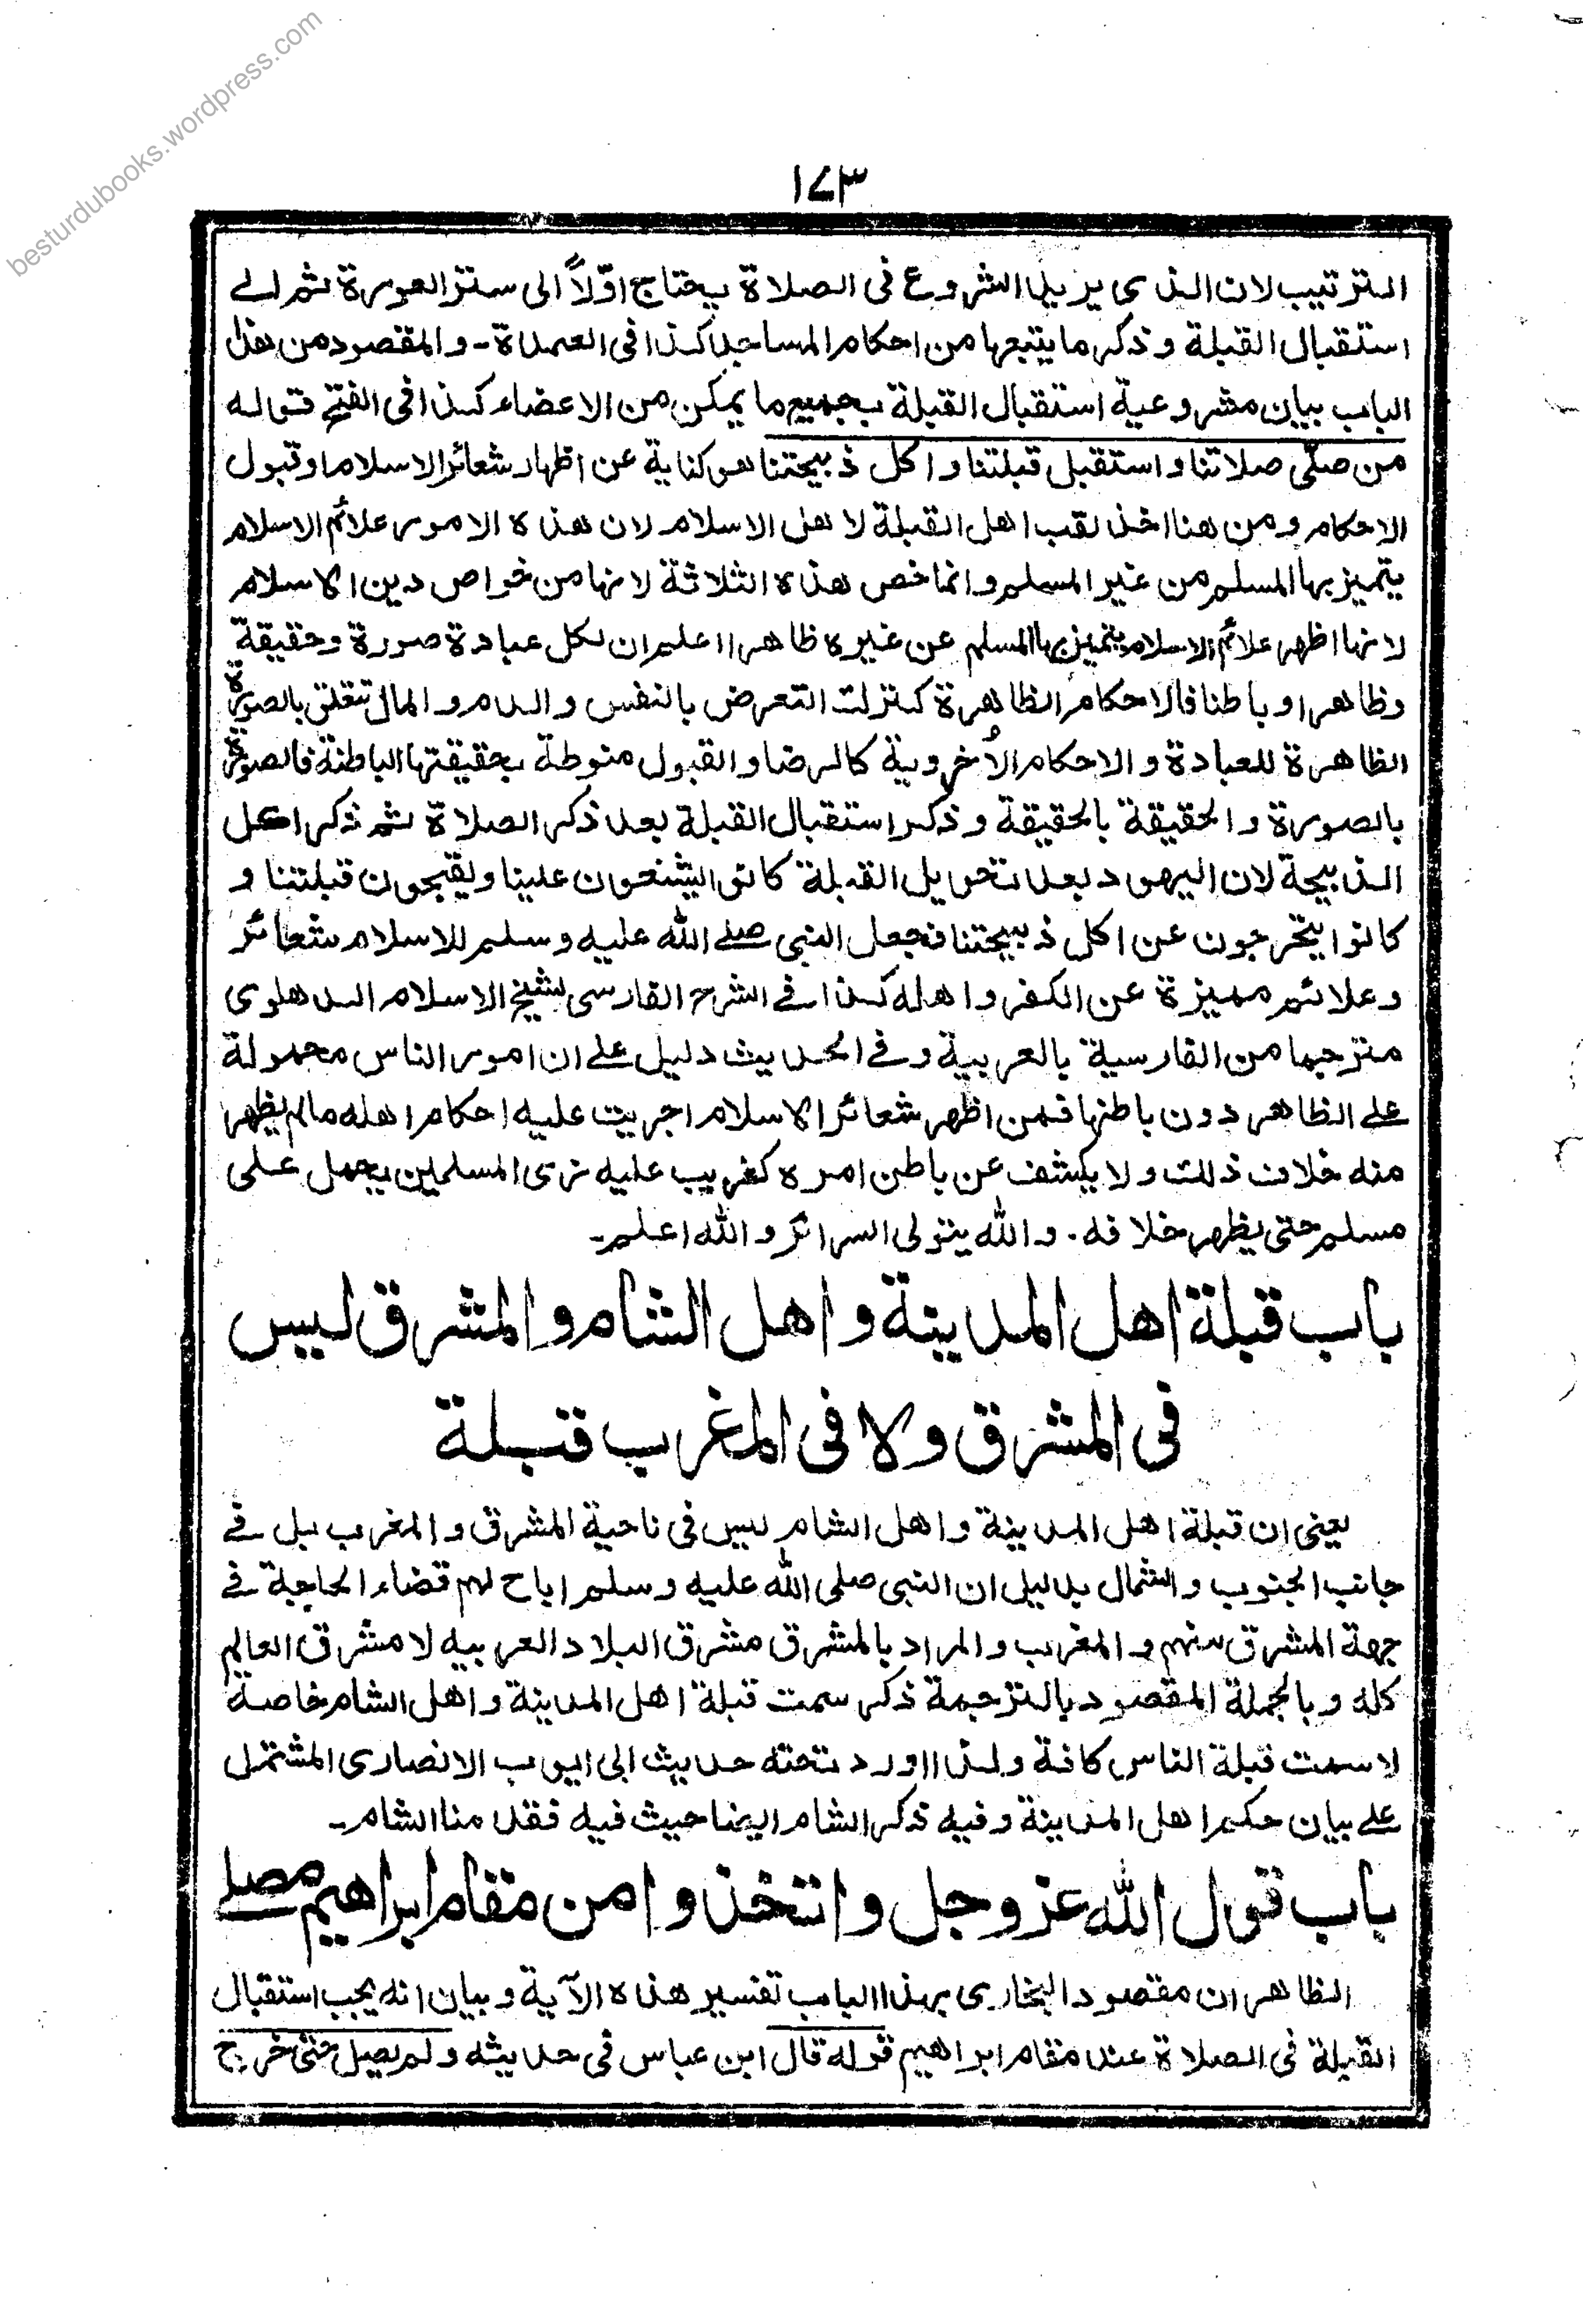 besturdubooks.wordpress.com
١٧٣
الترتيب لان الذى يريد الشروع فى الصلاة يحتاج اوّلاً الى ستر العورة ثم الے
استقبال القبلة وذكر ما يتبعها من احكام المساجد كذا فى العمدة ـ والمقصود من هذا
الباب بيان مشروعية استقبال القبلة بجميع ما يمكن من الاعضاء كذا فى الفتح قوله
من صلّى صلاتنا واستقبل قبلتنا واكل ذبيحتنا هو كناية عن اظهار شعائر الاسلام وقبول
الاحكام ومن هنا اخذ لقب اهل القبلة لاهل الاسلام لان هذه الامور علائم الاسلام
يتميز بها المسلم من غير المسلم وانما خص هذه الثلاثة لانها من خواص دين الاسلام
لانها اظهر علائم الاسلام يتميز بها المسلم عن غيره ظاهرا اعلم ان لكل عبادة صورة وحقيقة
وظاهرا وباطنا فالاحكام الظاهرة كترك التعرض بالنفس والدم والمال تتعلق بالصورة
الظاهرة للعبادة والاحكام الأخروية كالرضا والقبول منوطة بحقيقتها الباطنة فالصورة
بالصورة والحقيقة بالحقيقة وذكر استقبال القبلة بعد ذكر الصلاة ثم ذكر اكل
الذبيحة لان اليهود بعد تحويل القبلة كانوا يشنعون علينا ويقبحون قبلتنا و
كانوا يتحرجون عن اكل ذبيحتنا فجعل النبى صلے الله عليه وسلم للاسلام شعائر
وعلائم مميزة عن الكفر واهله كذا فے الشرح الفارسى لشيخ الاسلام الدهلوى
مترجما من الفارسية بالعربية وفے الحديث دليل علے ان امور الناس محمولة
علے الظاهر دون باطنها فمن اظهر شعائر الاسلام اجريت عليه احكام اهله مالم يظهر
منه خلاف ذلك ولا يكشف عن باطن امره كغريب عليه زى المسلمين يحمل على
مسلم حتى يظهر خلافه ۔ والله يتولى السرائر والله اعلم ـ
باب قبلة اهل المدينة واهل الشام والمشرق ليس
فى المشرق ولا فى المغرب قبلة
يعنى ان قبلة اهل المدينة واهل الشام ليس فى ناحية المشرق والمغرب بل فے
جانب الجنوب والشمال بدليل ان النبى صلى الله عليه وسلم اباح لهم قضاء الحاجة فے
جهة المشرق منهم والمغرب والمراد بالمشرق مشرق البلاد العربيه لا مشرق العالم
كله وبالجملة المقصود بالترجمة ذكر سمت قبلة اهل المدينة واهل الشام خاصة
لا سمت قبلة الناس كافة ولذا اورد تحته حديث ابى ايوب الانصارى المشتمل
علے بيان حكم اهل المدينة وفيه ذكر الشام ايضا حيث فيه فقدمنا الشام ـ
باب قول الله عز وجل واتخذوا من مقام ابراهيم مصلے
الظاهر ان مقصود البخارى بهذا الباب تفسير هذه الآية وبيان انه يجب استقبال
القبلة فى الصلاة عند مقام ابراهيم قوله قال ابن عباس فى حديثه ولم يصل حتى خرج